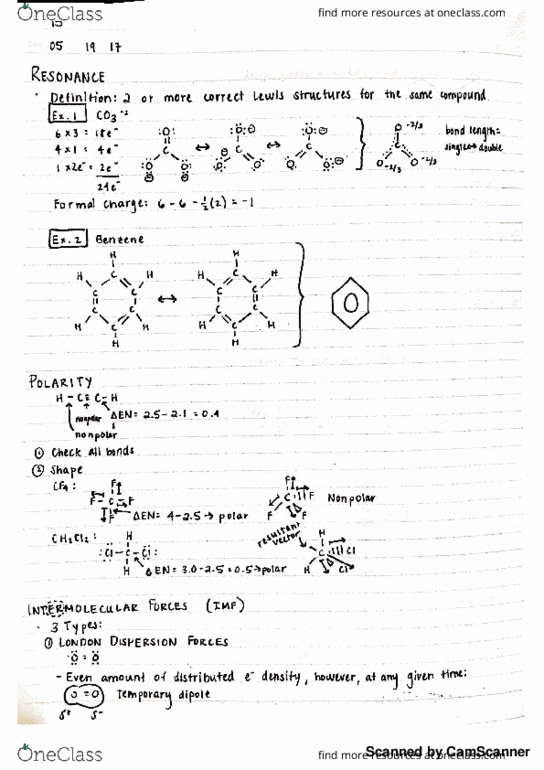 OneClass find more resources at oneclass.com
05 19 17
RESONANCE
· Definition: 2 or more correct Lewis structures for the same compound
Ex. 1 CO₃⁻²
6 x 3 = 18e⁻
4 x 1 = 4e⁻
1 x 2e⁻ = 2e⁻
24e⁻
bond length:
single ↔ double
Formal charge: 6 - 6 - ½(2) = -1
Ex. 2 Benzene
POLARITY
H - C ≡ C - H
nonpolar ΔEN = 2.5 - 2.1 = 0.4
nonpolar
① Check all bonds
② Shape
CF₄:
ΔEN = 4 - 2.5 → polar
Nonpolar
resultant vector
CH₂Cl₂:
ΔEN = 3.0 - 2.5 = 0.5 → polar
INTERMOLECULAR FORCES (IMF)
· 3 Types:
① LONDON DISPERSION FORCES
O = O
- Even amount of distributed e⁻ density, however, at any given time:
O = O Temporary dipole
δ⁺ δ⁻
OneClass find more resources at oneclass.com
Scanned by CamScanner